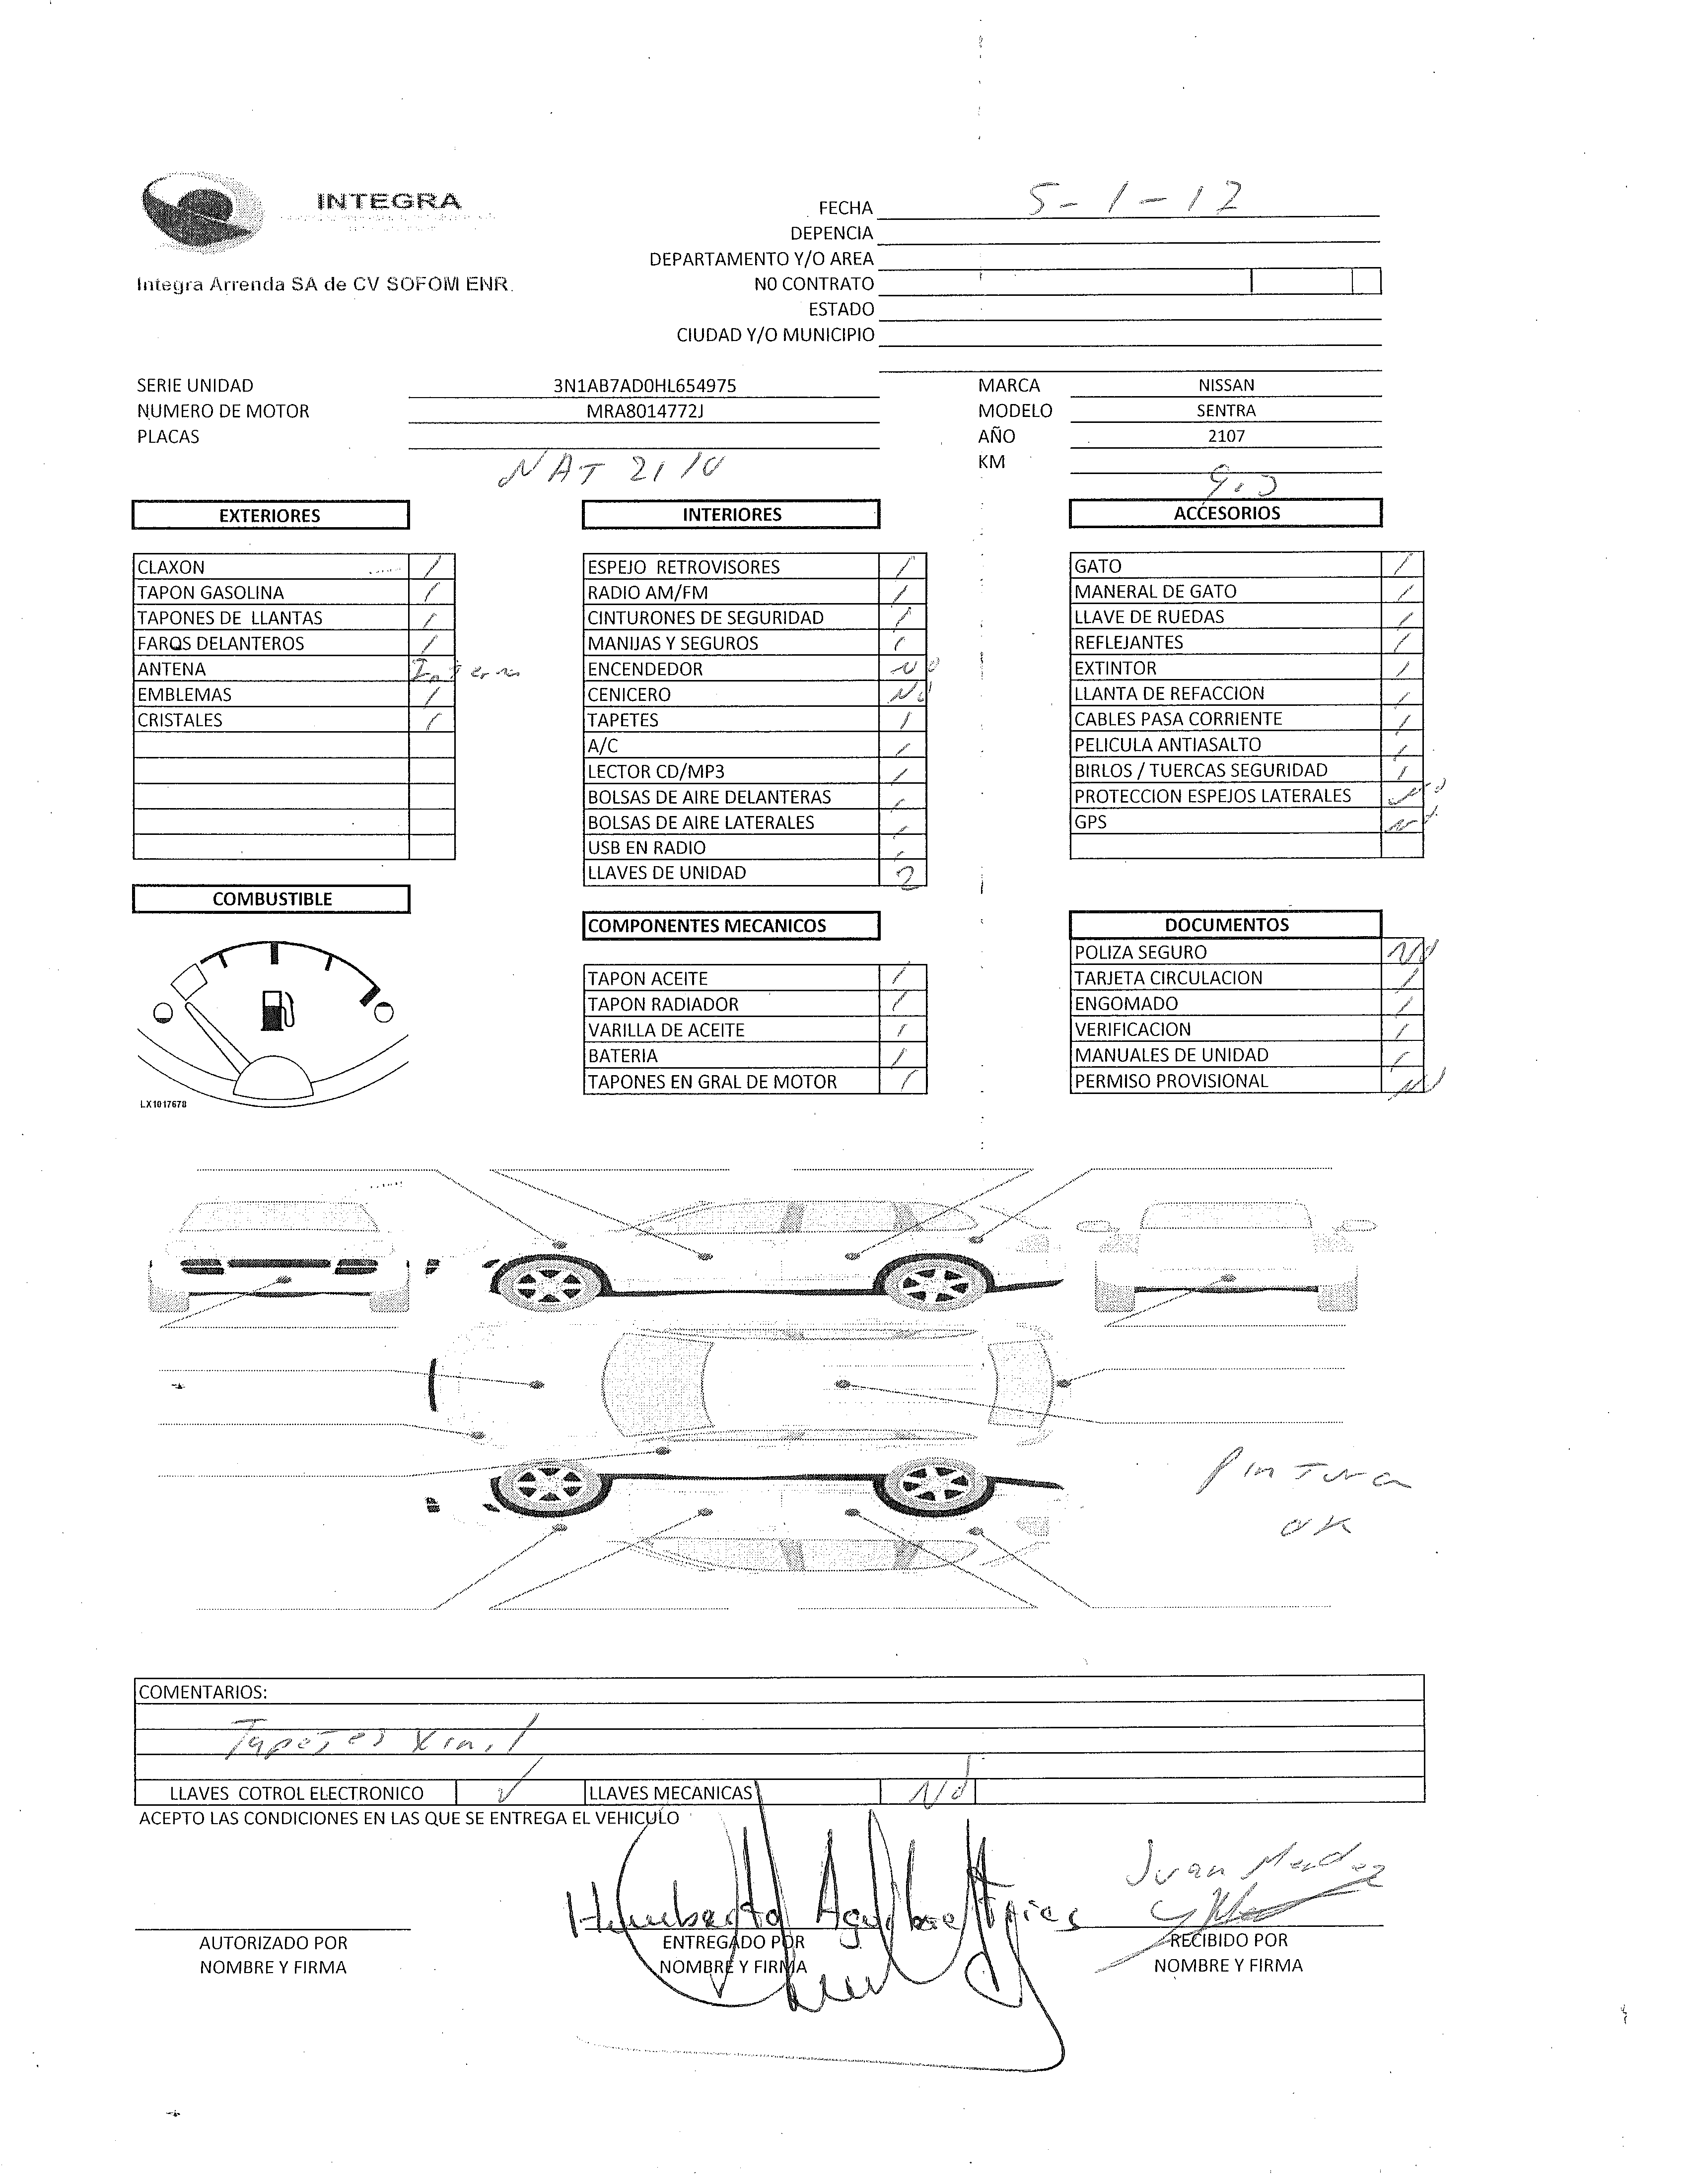 INTEGRA
Integra Arrenda SA de CV SOFOM ENR.
FECHA 5-1-17
DEPENCIA
DEPARTAMENTO Y/O AREA
N0 CONTRATO
ESTADO
CIUDAD Y/O MUNICIPIO
SERIE UNIDAD 3N1AB7AD0HL654975 MARCA NISSAN
NUMERO DE MOTOR MRA8014772J MODELO SENTRA
PLACAS AÑO 2107
NAT 2110 KM
EXTERIORES
CLAXON /
TAPON GASOLINA /
TAPONES DE LLANTAS /
FAROS DELANTEROS /
ANTENA Interna
EMBLEMAS /
CRISTALES /
COMBUSTIBLE
LX1017678
INTERIORES
ESPEJO RETROVISORES /
RADIO AM/FM /
CINTURONES DE SEGURIDAD /
MANIJAS Y SEGUROS /
ENCENDEDOR No
CENICERO No
TAPETES /
A/C /
LECTOR CD/MP3 /
BOLSAS DE AIRE DELANTERAS /
BOLSAS DE AIRE LATERALES /
USB EN RADIO /
LLAVES DE UNIDAD 2
COMPONENTES MECANICOS
TAPON ACEITE /
TAPON RADIADOR /
VARILLA DE ACEITE /
BATERIA /
TAPONES EN GRAL DE MOTOR /
ACCESORIOS
GATO /
MANERAL DE GATO /
LLAVE DE RUEDAS /
REFLEJANTES /
EXTINTOR /
LLANTA DE REFACCION /
CABLES PASA CORRIENTE /
PELICULA ANTIASALTO /
BIRLOS / TUERCAS SEGURIDAD /
PROTECCION ESPEJOS LATERALES No
GPS No
DOCUMENTOS
POLIZA SEGURO No
TARJETA CIRCULACION /
ENGOMADO /
VERIFICACION /
MANUALES DE UNIDAD /
PERMISO PROVISIONAL No
Pintura
OK
COMENTARIOS:
Tapetes Vinil
LLAVES COTROL ELECTRONICO ✓ LLAVES MECANICAS No
ACEPTO LAS CONDICIONES EN LAS QUE SE ENTREGA EL VEHICULO
Juan Mendez
Humberto Aguilar Frias
AUTORIZADO POR
NOMBRE Y FIRMA
ENTREGADO POR
NOMBRE Y FIRMA
RECIBIDO POR
NOMBRE Y FIRMA